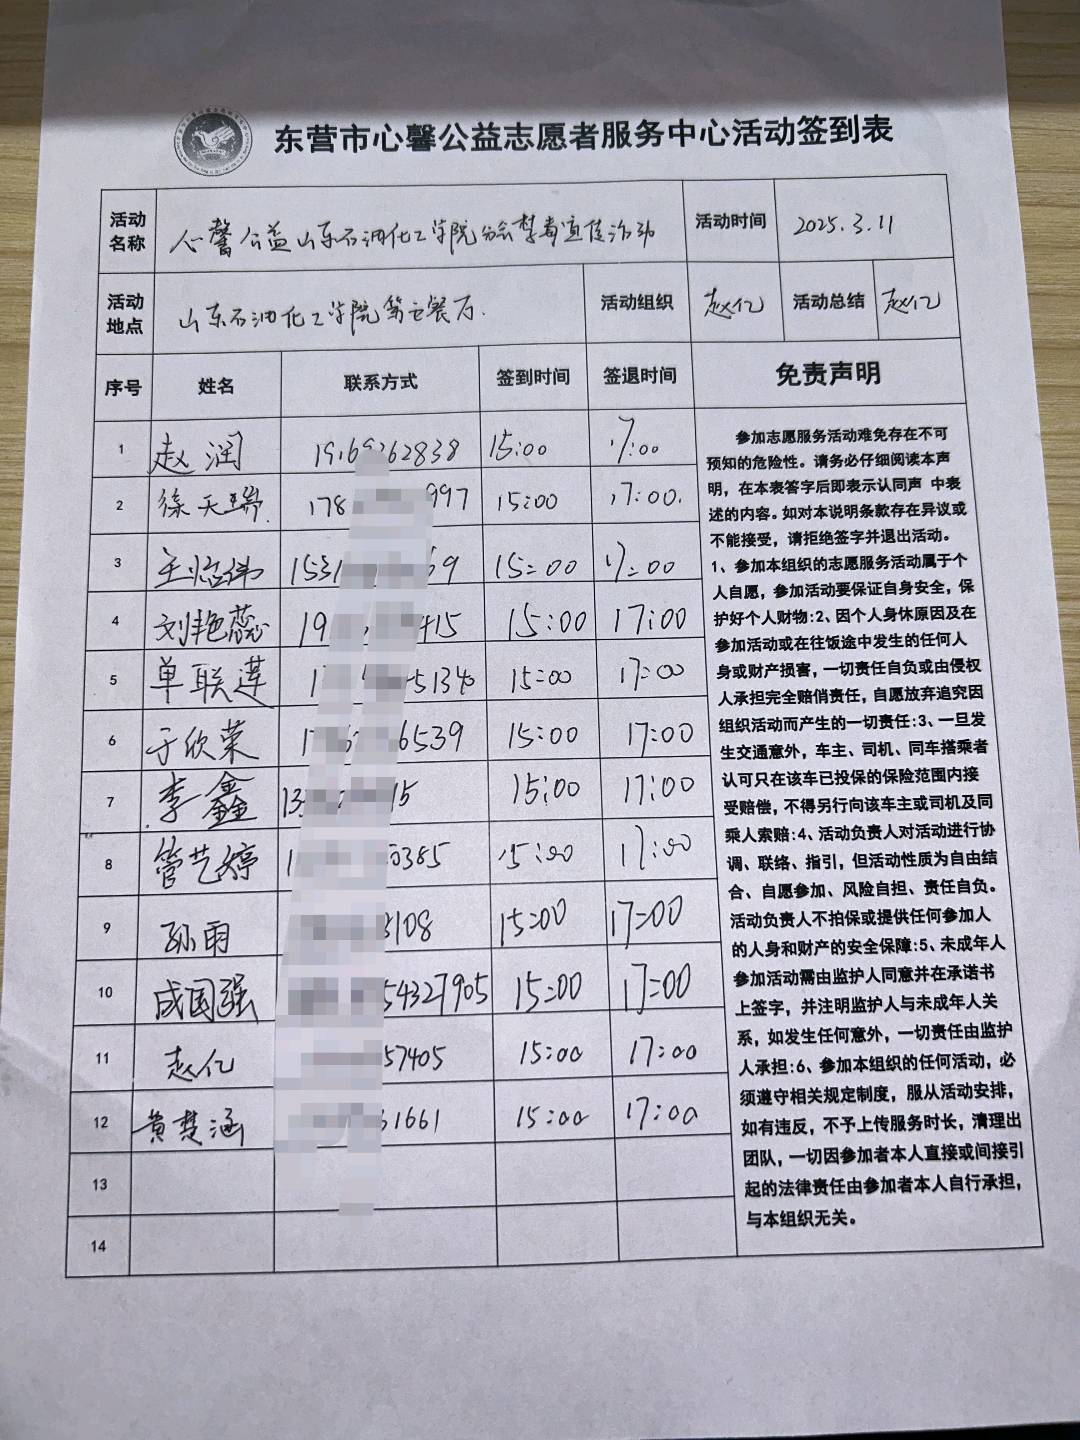 东营市心馨公益志愿者服务中心活动签到表
活动名称 心馨公益山东石油化工学院分会禁毒宣传活动 活动时间 2025.3.11
活动地点 山东石油化工学院第七餐厅. 活动组织 赵亿 活动总结 赵亿
序号 姓名 联系方式 签到时间 签退时间 免责声明
1 赵润 62838 15:00 17:00
2 徐天瑞 178 997 15:00 17:00.
3 王 伟 1531 69 15:00 17:00
4 刘艳蕊 19 415 15:00 17:00
5 单联莲 1 5134 15:00 17:00
6 于欣荣 1 6539 15:00 17:00
7 李鑫 13 15 15:00 17:00
8 管艺婷 1 0385 15:00 17:00
9 孙雨 3108 15:00 17:00
10 成国强 54327905 15:00 17:00
11 赵亿 57405 15:00 17:00
12 黄楚涵 61661 15:00 17:00
13
14
参加志愿服务活动难免存在不可
预知的危险性。请务必仔细阅读本声
明，在本表答字后即表示认同声 中表
述的内容。如对本说明条款存在异议或
不能接受，请拒绝签字并退出活动。
1、参加本组织的志愿服务活动属于个
人自愿，参加活动要保证自身安全，保
护好个人财物:2、因个人身休原因及在
参加活动或在往饭途中发生的任何人
身或财产损害，一切责任自负或由侵权
人承担完全赔俏责任，自愿放弃追究因
组织活动而产生的一切责任:3、一旦发
生交通意外，车主、司机、同车搭乘者
认可只在该车已投保的保险范围内接
受赔偿，不得另行向该车主或司机及同
乘人索赔:4、活动负责人对活动进行协
调、联络、指引，但活动性质为自由结
合、自愿参加、风险自担、责任自负。
活动负责人不拍保或提供任何参加人
的人身和财产的安全保障:5、未成年人
参加活动需由监护人同意并在承诺书
上签字，并注明监护人与未成年人关
系，如发生任何意外，一切责任由监护
人承担:6、参加本组织的任何活动，必
须遵守相关规定制度，服从活动安排，
如有违反，不予上传服务时长，清理出
团队，一切因参加者本人直接或间接引
起的法律责任由参加者本人自行承担，
与本组织无关。